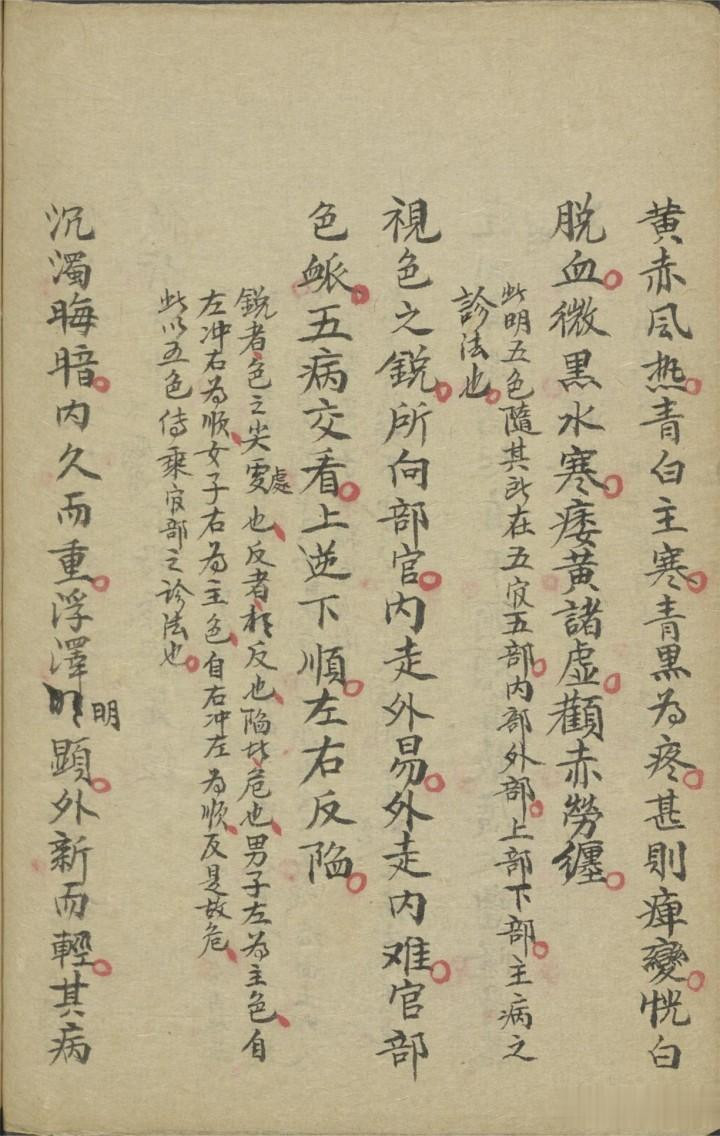 黄赤风热青白主寒青黑为疼甚则痺變恍白
脱血微黒水寒痿黄諸虚顴赤勞纏
此明五色隨其所在五官五部内部外部上部下部主病之
診法也
視色之鋭所向部官内走外易外走内难官部
色衇五病交看上逆下順左右反陷
鋭者色之尖處也反者相反也陷者危也男子左为主色自
左冲右为順女子右为主色自右冲左为順反是故危
此以五色侍乘官部之診法也
沉濁晦暗内久而重浮澤明顕外新而輕其病